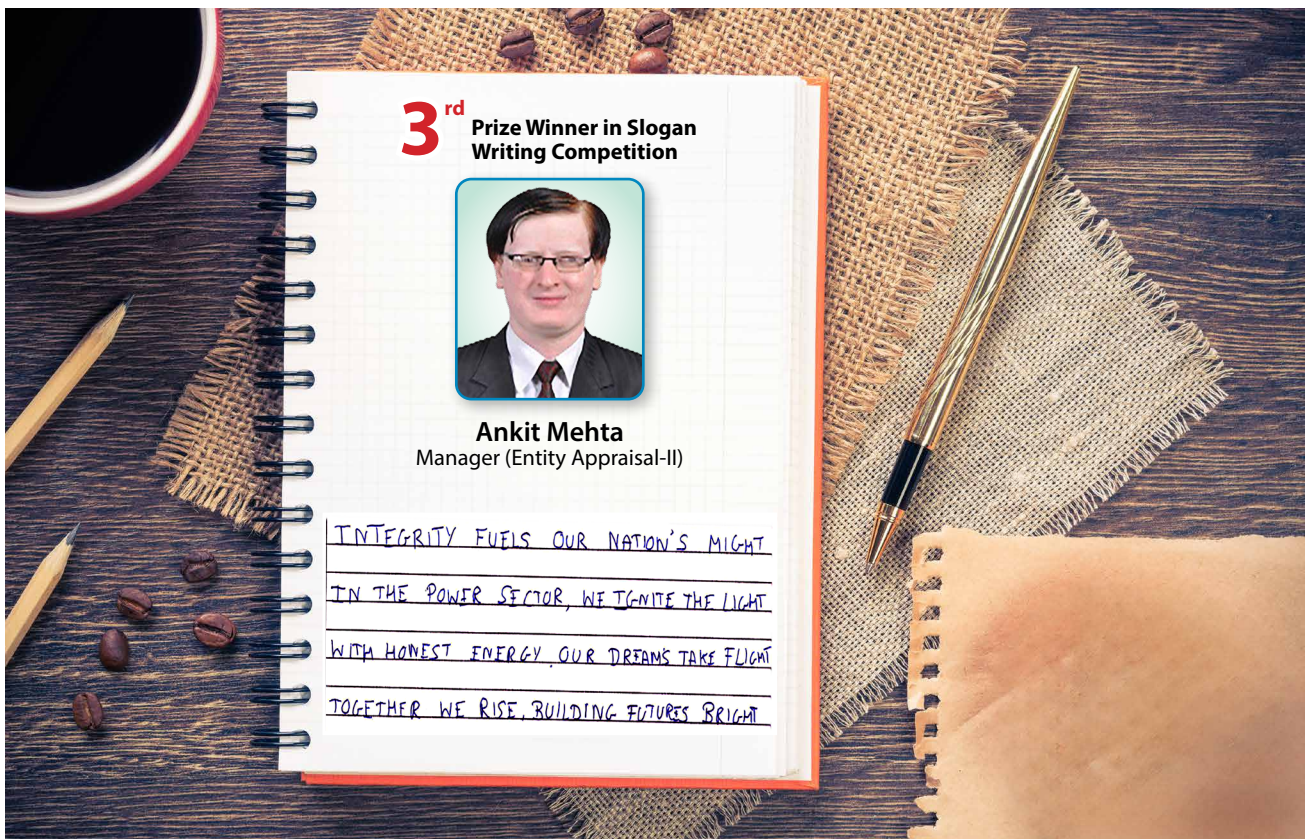 3rd
Prize Winner in Slogan
Writing Competition
Ankit Mehta
Manager (Entity Appraisal-II)
INTEGRITY FUELS OUR NATION'S MIGHT
IN THE POWER SECTOR, WE IGNITE THE LIGHT
WITH HONEST ENERGY, OUR DREAMS TAKE FLIGHT
TOGETHER WE RISE, BUILDING FUTURES BRIGHT